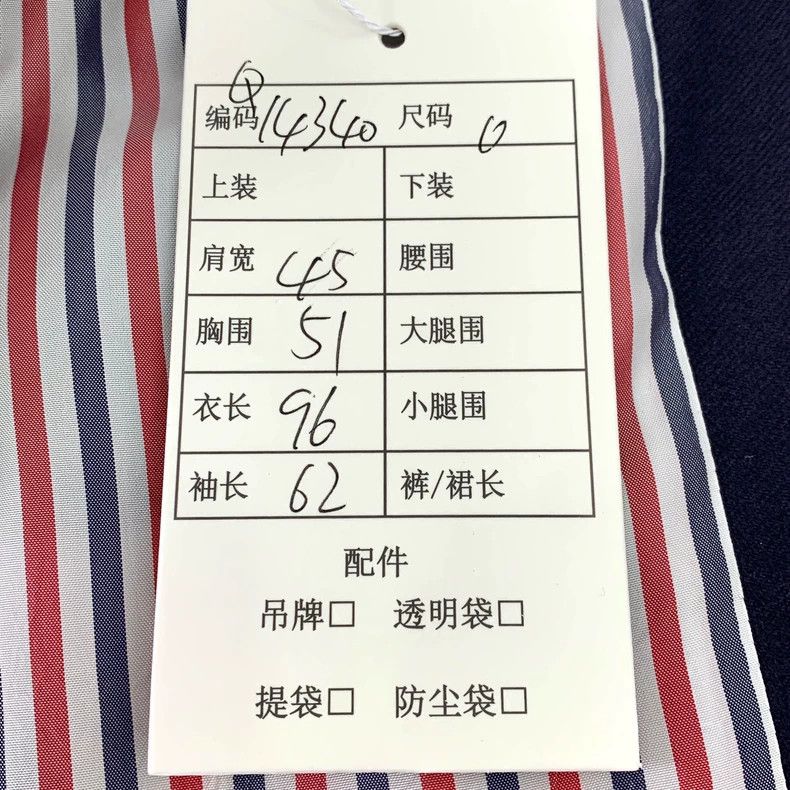 编码 Q14340 尺码 0
上装 下装
肩宽 45 腰围
胸围 51 大腿围
衣长 96 小腿围
袖长 62 裤/裙长
配件
吊牌□ 透明袋□
提袋□ 防尘袋□